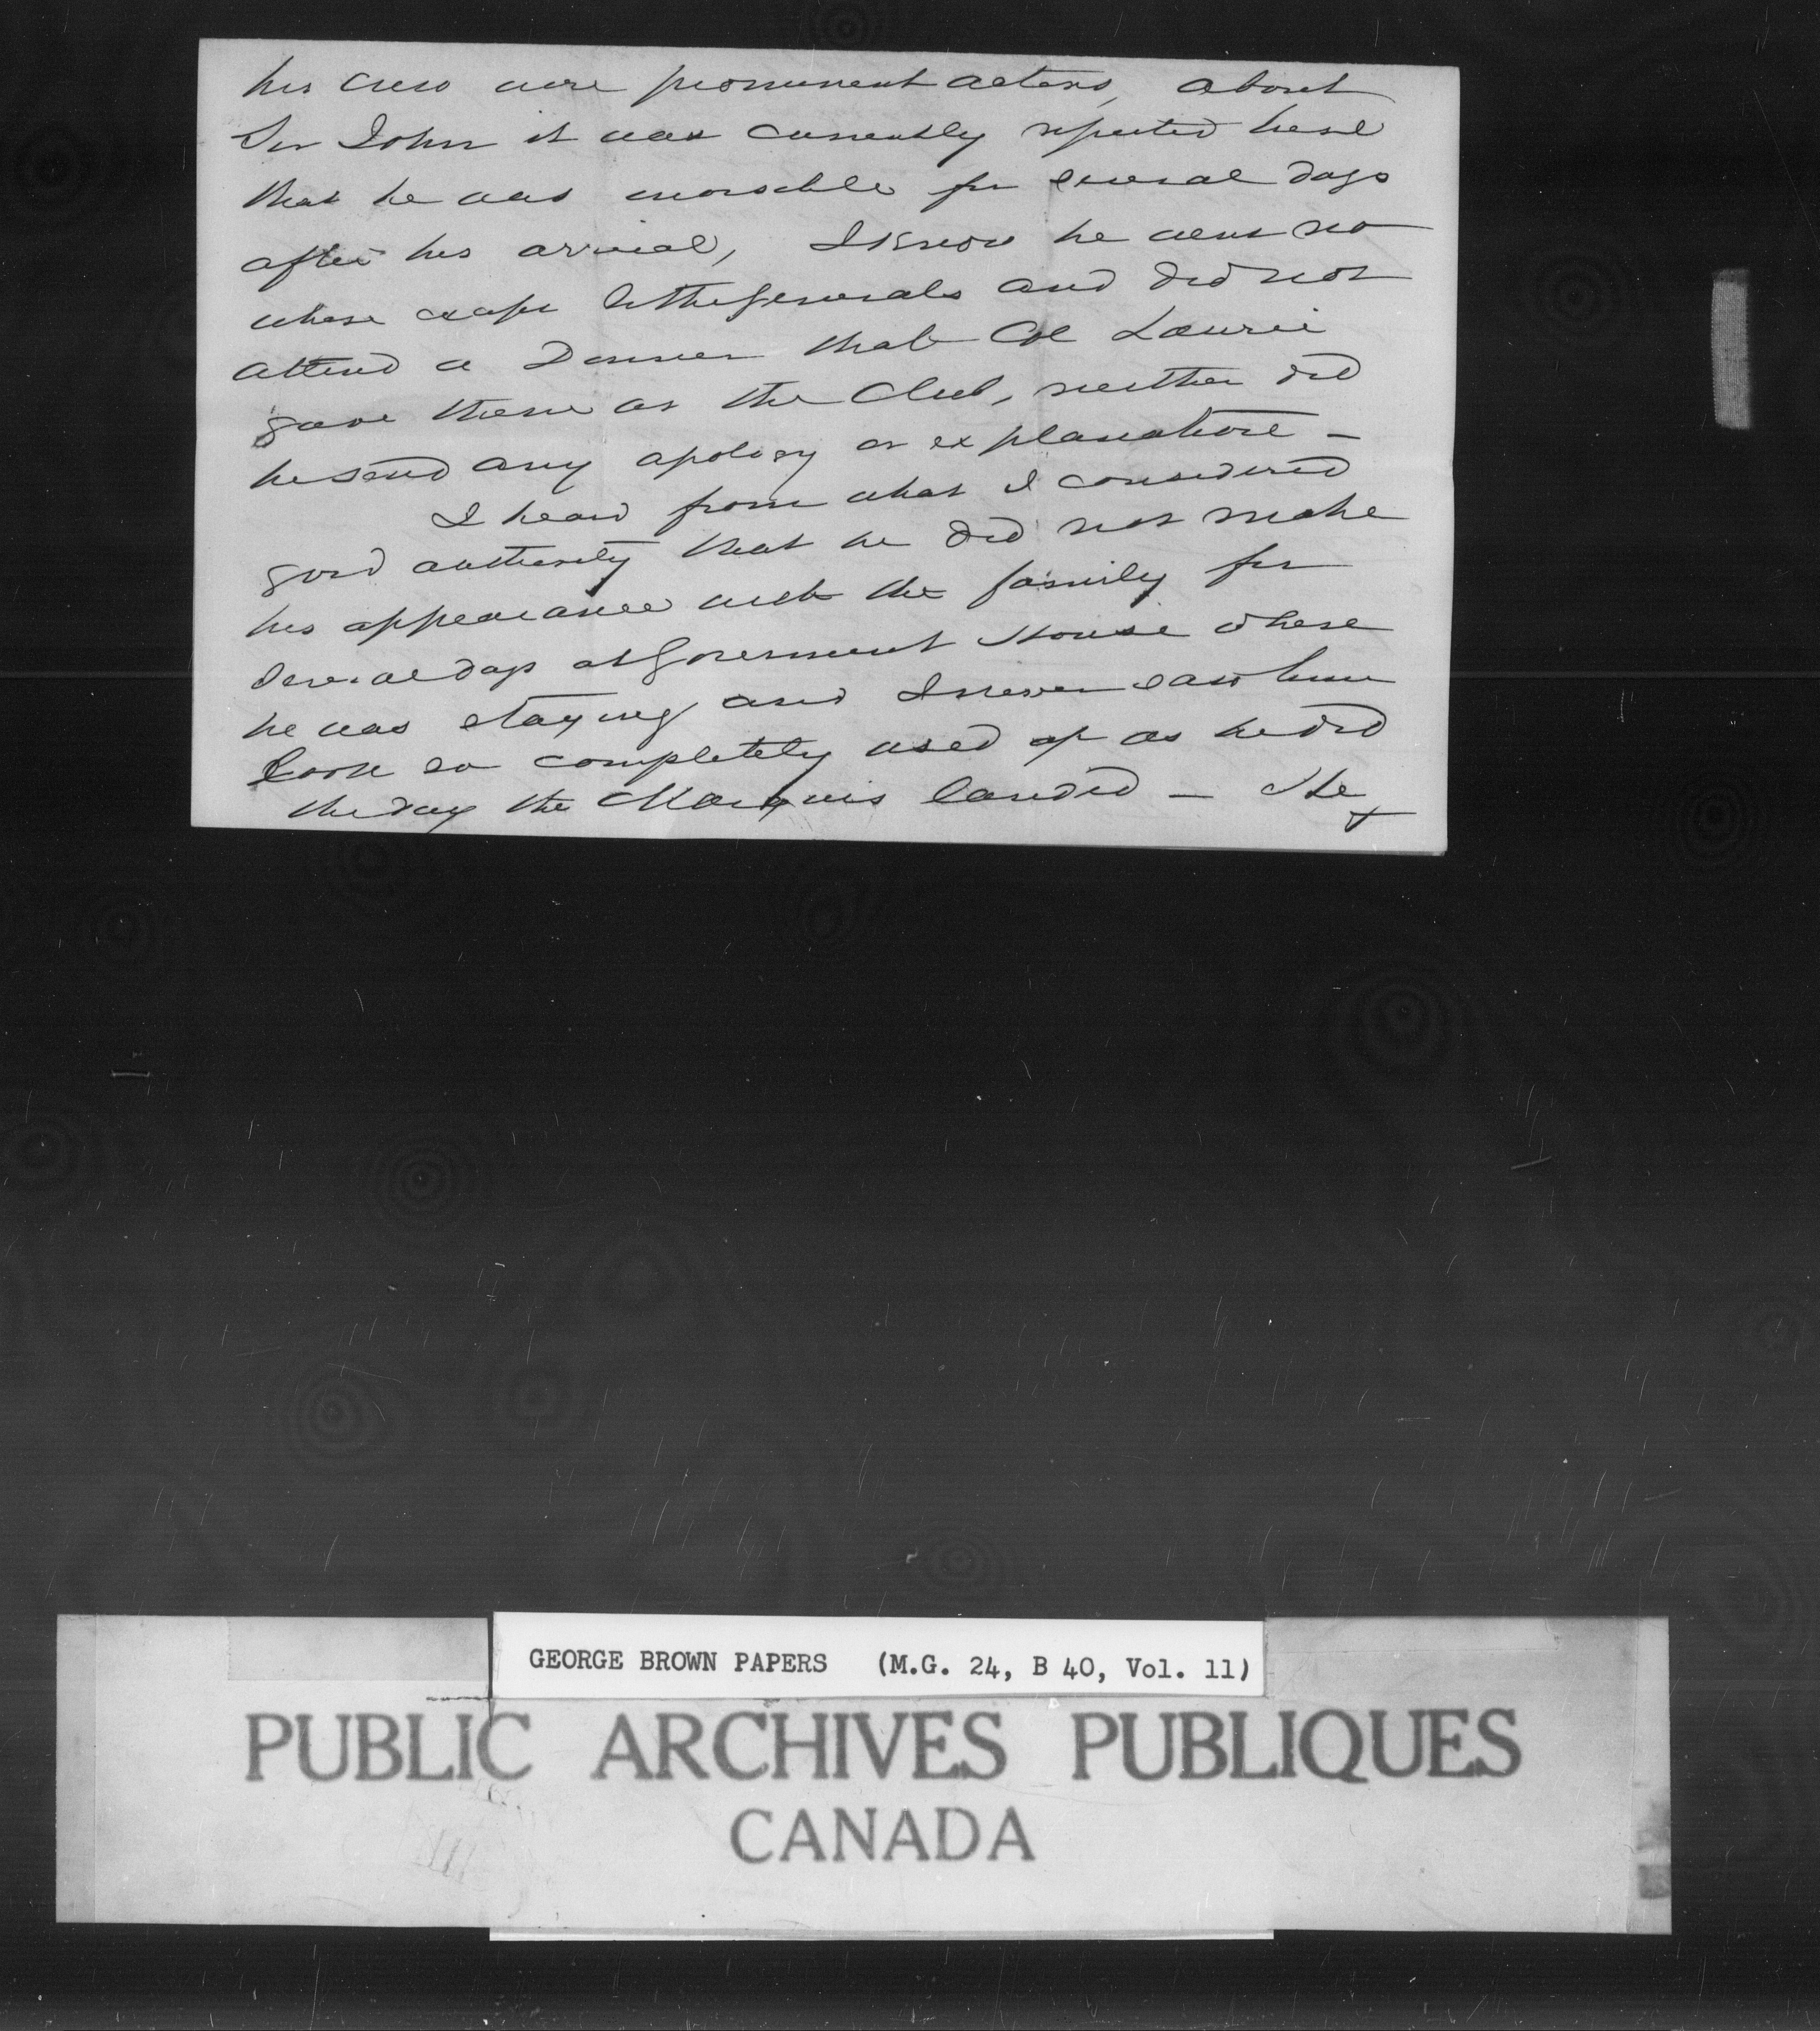 his crew were prominent actors, about
Sir John it was currently reported here
that he was invisible for several days
after his arrival, I know he went no
where except to the Generals and did not
attend a Dinner that Col Laurie
gave them at the Club, neither did
he send any apology or explanation —
I heard from what I considered
good authority that he did not make
his appearance with the family for
several days at Goverment House where
he was staying and I never saw him
look so completely used up as he did
the day the Marquis landed — He
GEORGE BROWN PAPERS (M.G. 24, B 40, Vol. 11)
PUBLIC ARCHIVES PUBLIQUES
CANADA